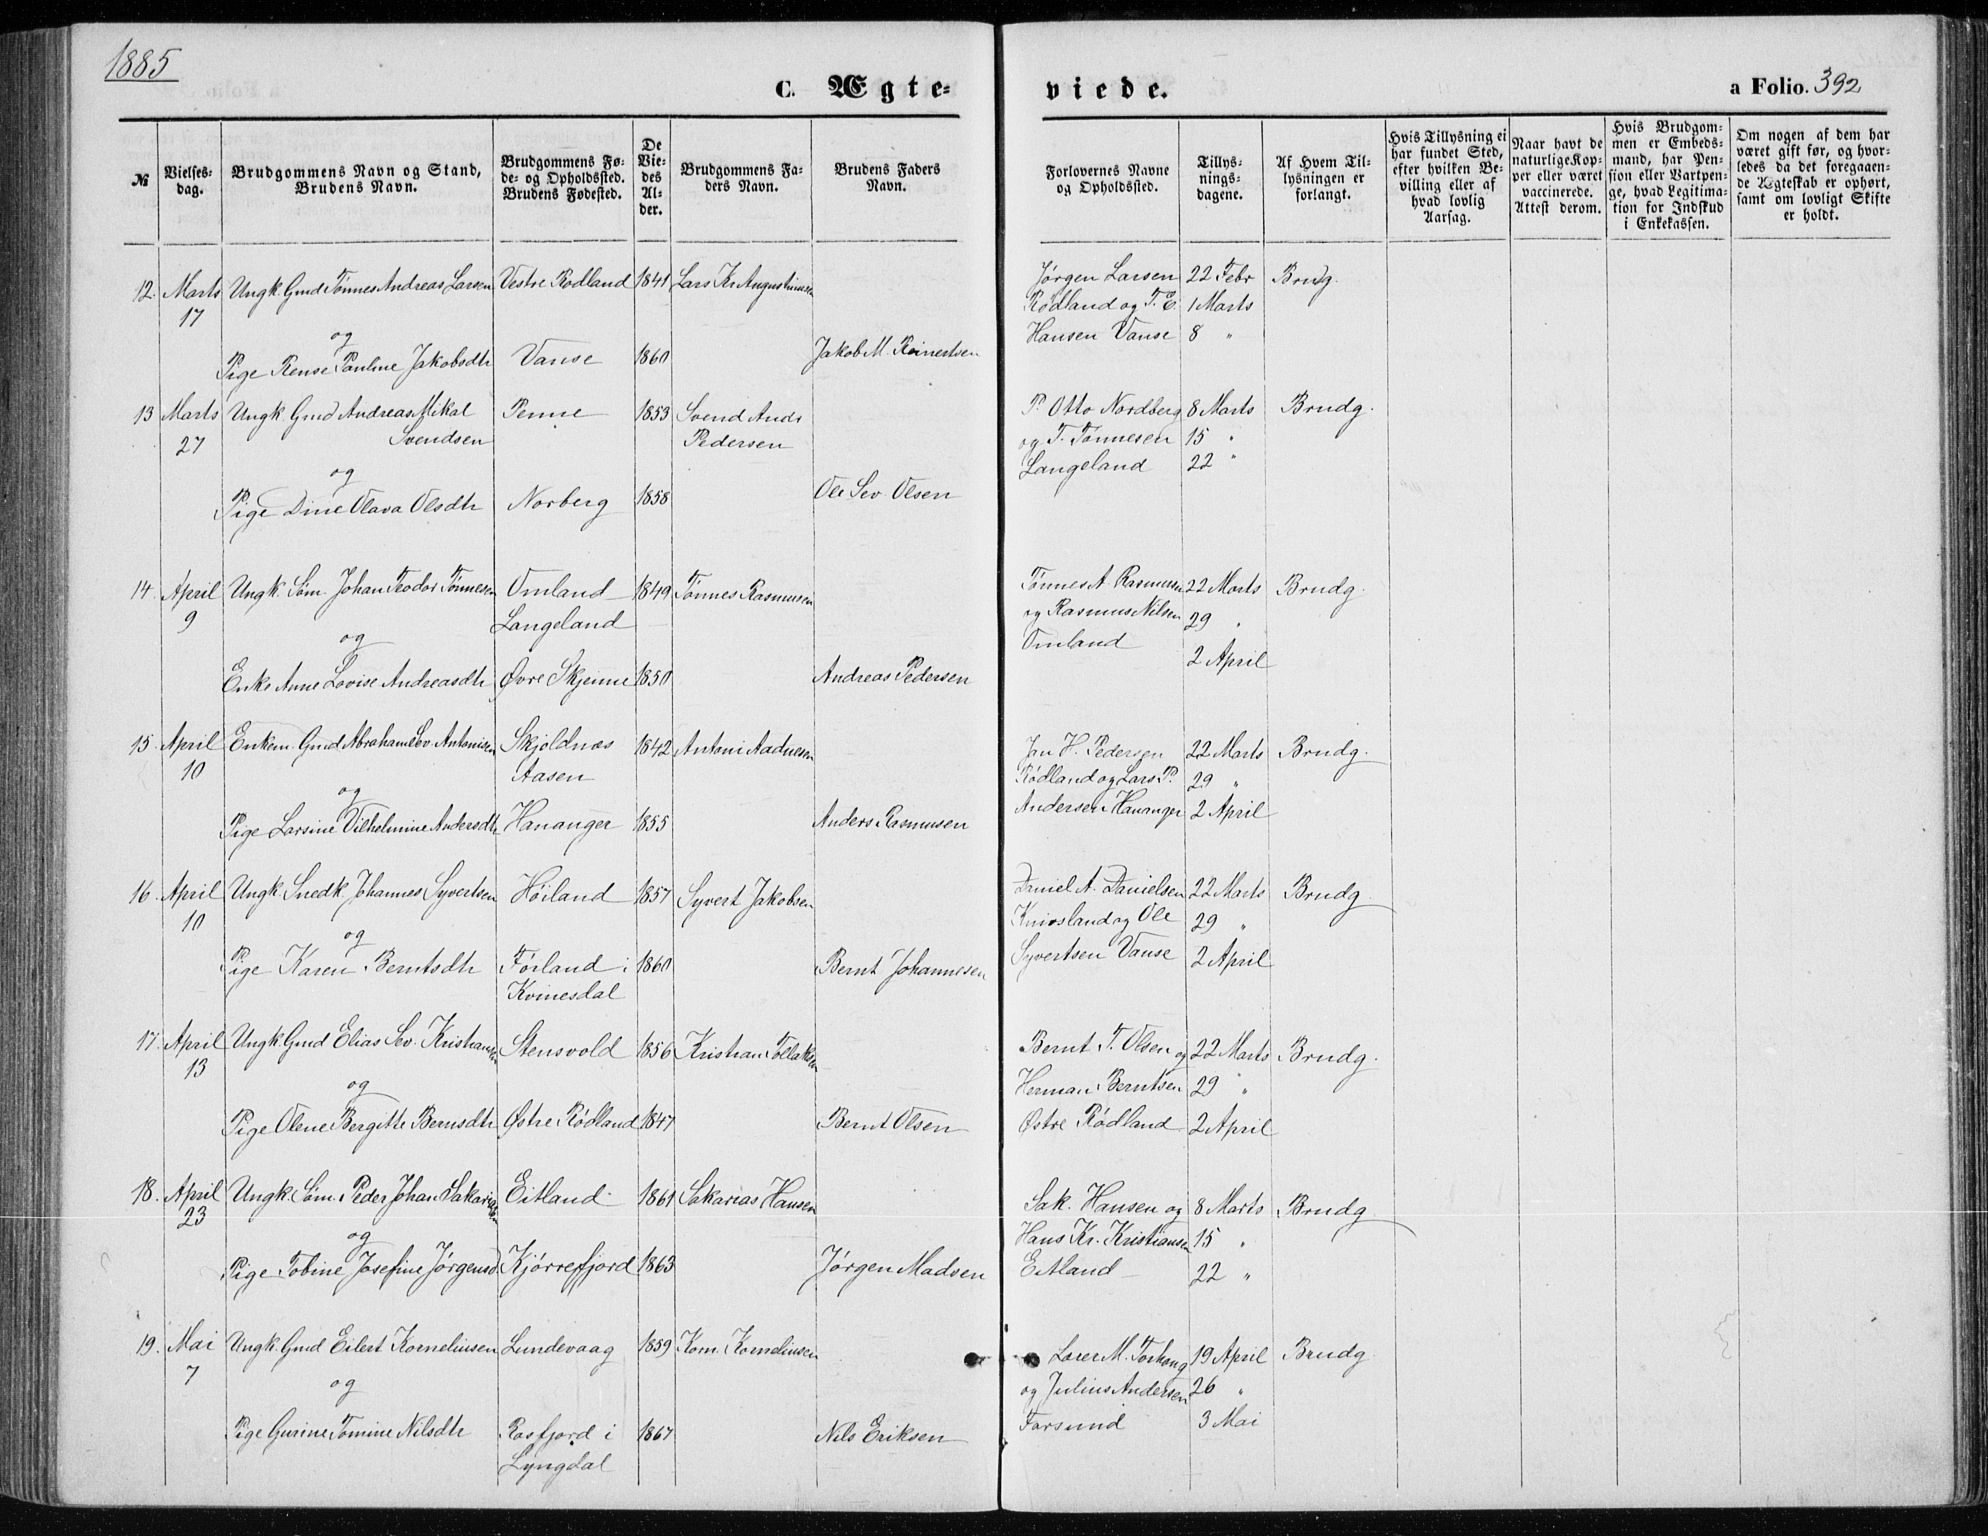 1885
C. Ægte-
viede.
a Folio. 392
№
Vielses-
dag.
Brudgommens Navn og Stand,
Brudens Navn.
Brudgommens Fø-
de- og Opholdssted.
Brudens Fødested.
De
Vie-
des
Al-
der.
Brudgommens Fa-
ders Navn.
Brudens Faders
Navn.
Forlovernes Navne
og Opholdssted.
Tillys-
nings-
dagene.
Af Hvem Til-
lysningen er
forlangt.
Hvis Tillysning ei
har fundet Sted,
efter hvilken Be-
villing eller af
hvad lovlig
Aarsag.
Naar havt de
naturlige Kop-
per eller været
vaccinerede.
Attest derom.
Hvis Brudgom-
men er Embeds-
mand, har Pen-
sion eller Vartpen-
ge, hvad Legitima-
tion for Indskud
i Enkekassen.
Om nogen af dem har
været gift før, og hvor-
ledes da det foregaaen-
de Ægteskab er ophørt,
samt om lovligt Skifte
er holdt.
12. Marts Ungk. Gmd Tønnes Andreas Larsen Vestre Rødland 1841 Lars Kr Augustinusen Jørgen Larsen 22 Febr Brudg.
17 Rødland og T. E. 1 Marts
og Hansen Vanse 8 "
Pige Rense Pauline Jakobsdtr Vanse 1860 Jakob M. Reinertsen
13 Marts Ungk Gmd Andreas Mikal Penne 1853 Svend Ands P. Otto Nordberg 8 Marts Brudg.
27 Svendsen Pedersen og T. Tønnesen 15 "
og Langeland 22 "
Pige Dine Olava Olsdtr Norberg 1858 Ole Sev. Olsen
14. April Ungk. Søm. Johan Teodor Tønnesen Omland 1849 Tønnes Rasmusen Tønnes A. Rasmusen 22 Marts Brudg.
9 Langeland og Rasmus Nilsen 29 "
og Omland 2 April
Enke Anne Lovise Andreasdtr Øvre Skjeinne 1850 Andreas Pedersen
15. April Enkem. Gmd Abraham Sev. Antonisen Skjoldnæs 1842 Antoni Aadnesen Jon H. Pedersen 22 Marts Brudg.
10 Aasen Rødland og Lars P. 29 "
og Andersen Hananger 2 April
Pige Larsine Vilhelmine Andersdtr Hananger 1855 Anders Rasmusen
16. April Ungk Snedk Johannes Syvertsen Høiland 1857 Syvert Jakobsen Daniel A. Danielsen 22 Marts Brudg
10 og Ole 29 "
og Syvertsen Vanse 2 April
Pige Karen Berntsdtr Førland i 1860 Bernt Johannesen
Kvinesdal
17. April Ungk. Gmd Elias Sev. Kristiansen Stensvold 1856 Kristian Tollaksen Bernt T. Olsen og 22 Marts Brudg.
13 Herman Berntsen 29 "
og Østre Rødland 2 April
Pige Olene Bergitte Bernsdtr Østre Rødland 1847 Bernt Olsen
18. April Ungk. Søm. Peder Johan Sakariasen Eitland 1861 Sakarias Hansen Sak. Hansen og 8 Marts Brudg
23 Hans Kr. Kristiansen 15 "
og Eitland 22 "
Pige Tobine Josefine Jørgensd Kjørrefjord 1863 Jørgen Madsen
19. Mai Ungk. Gmd Eilert Kornelinsen Lundevaag 1859 Korn. Kornelinsen M. 19 April Brudg
7 og Julius Andersen 26 "
og Farsund 3 Mai
Pige Gurine Tomine Nilsdtr Rosfjord i 1867 Nils Eriksen
Lyngdal